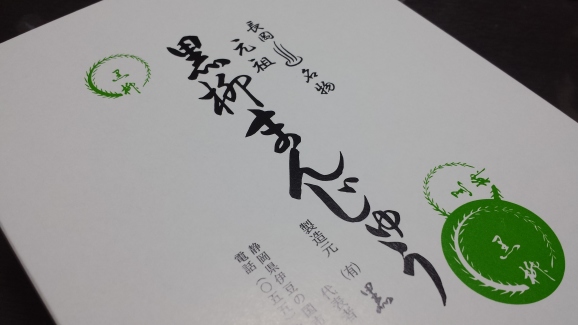 長岡
名物
元祖
黒柳まんじゅう
製造元
(有)
黒
静岡県伊豆の国
電話(〇五五
黒
柳
黒
柳